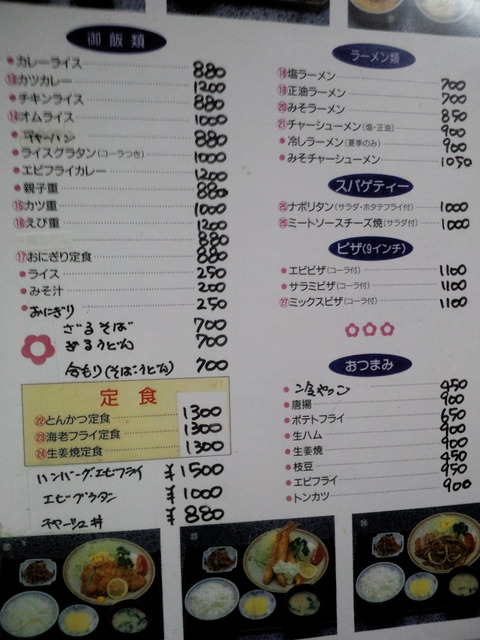 御飯類
カレーライス 880
⑬カツカレー 1200
チキンライス 880
⑭オムライス 1000
チャーハン 880
ライスグラタン(コーラつき) 1000
エビフライカレー 1200
親子重 880
⑮カツ重 1000
⑯えび重 1200
880
⑰おにぎり定食 880
ライス 250
みそ汁 200
おにぎり 250
ざるそば 700
ざるうどん 700
合もり(そば・うどん) 700
定食
㉒とんかつ定食 1300
㉓海老フライ定食 1300
㉔生姜焼定食 1300
ハンバーグ.エビフライ ¥1500
エビグラタン ¥1000
チャーシュー丼 ¥880
ラーメン類
⑱塩ラーメン 700
⑲正油ラーメン 700
⑳みそラーメン 850
㉑チャーシューメン(塩・正油) 900
冷しラーメン(夏季のみ) 900
みそチャーシューメン 1050
スパゲティー
㉕ナポリタン(サラダ・ホタテフライ付) 1000
㉖ミートソースチーズ焼(サラダ付) 1000
ピザ(9インチ)
エビピザ(コーラ付) 1100
サラミピザ(コーラ付) 1100
㉗ミックスピザ(コーラ付) 1100
おつまみ
450
唐揚 900
ポテトフライ 650
生ハム 900
生姜焼 900
枝豆 450
エビフライ 950
トンカツ 900